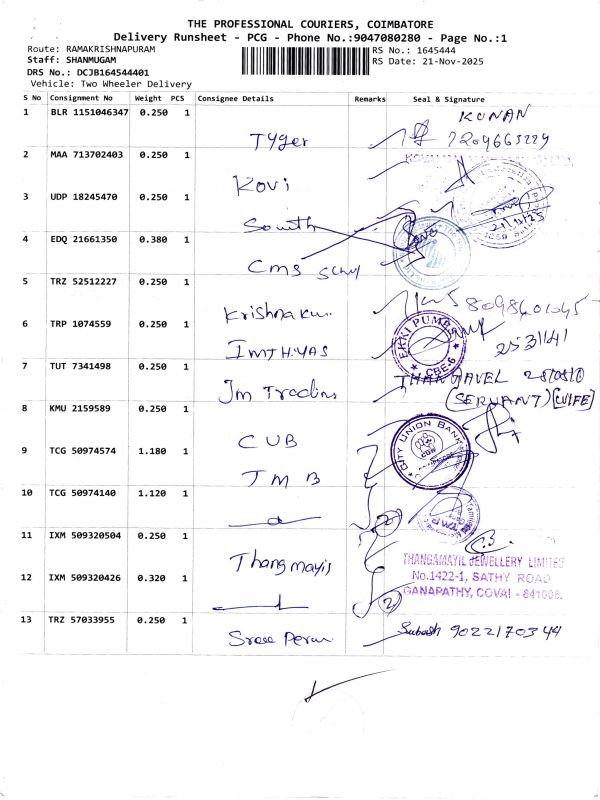 THE PROFESSIONAL COURIERS, COIMBATORE
Delivery Runsheet - PCG - Phone No.:9047080280 - Page No.:1
Route: RAMAKRISHNAPURAM RS No.: 1645444
Staff: SHANMUGAM RS Date: 21-Nov-2025
DRS No.: DCJB164544401
Vehicle: Two Wheeler Delivery
S No Consignment No Weight PCS Consignee Details Remarks Seal & Signature
1 BLR 1151046347 0.250 1 Tyger KUNAN
2 MAA 713702403 0.250 1 Kovi
3 UDP 18245470 0.250 1 South 21/11/25
4 EDQ 21661350 0.380 1 Cms
5 TRZ 52512227 0.250 1
6 TRP 1074559 0.250 1 IMTHIYAS EKKI PUMPS CBE-6
7 TUT 7341498 0.250 1 Jm
(SERVANT) (WIFE)
8 KMU 2159589 0.250 1 CUB CITY UNION BANK
9 TCG 50974574 1.180 1 TMB
10 TCG 50974140 1.120 1 2
11 IXM 509320504 0.250 1 Thangmayis THANGAMAYIL JEWELLERY LIMITED
12 IXM 509320426 0.320 1 2 No.1422-1, SATHY ROAD
GANAPATHY, COVAI - 641006.
13 TRZ 57033955 0.250 1 Sree Subash 9022170344